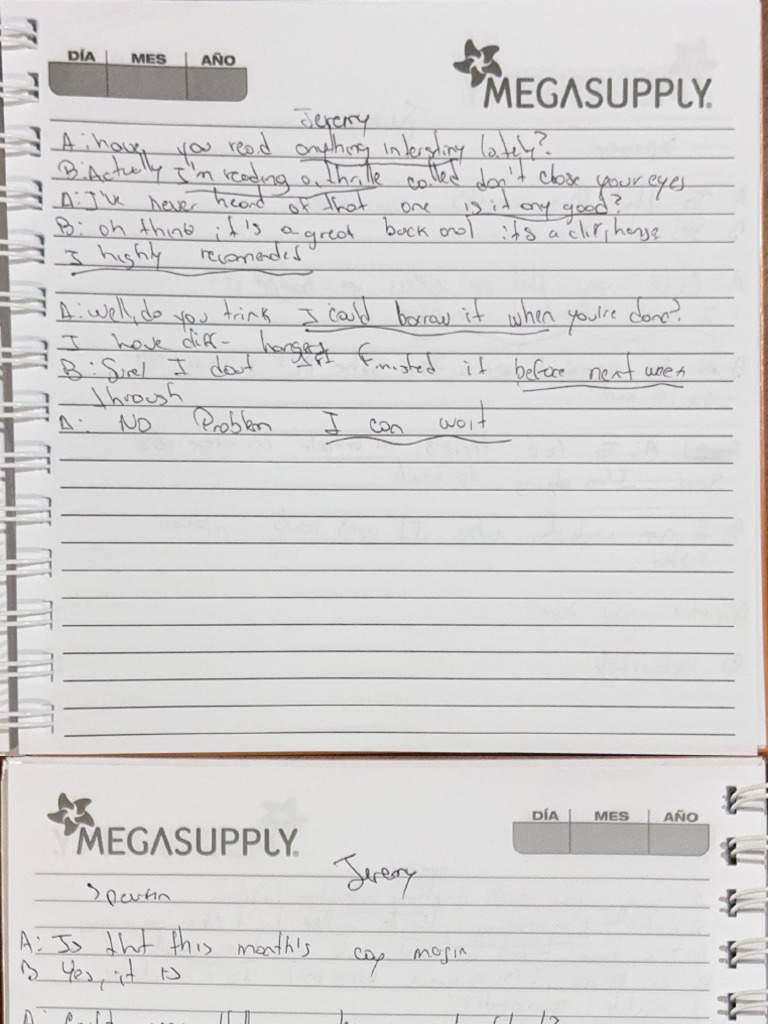 DÍA MES AÑO
MEGASUPPLY.
Jeremy
A: have you read anything intersting lately?
B: Actually I'm reading a thrille called don't close your eyes
A: I've never heard of that one is it any good?
B: oh think it's a great book and it's a
I highly recomended
A: Well, do you trink I could borrow it when you're done?
I have diff-
B: Sure! I dout finished it before next week
through
A: No Problem I can wait
MEGASUPPLY.
DÍA MES AÑO
Jeremy
A: Is that this month's
B Yes, it is